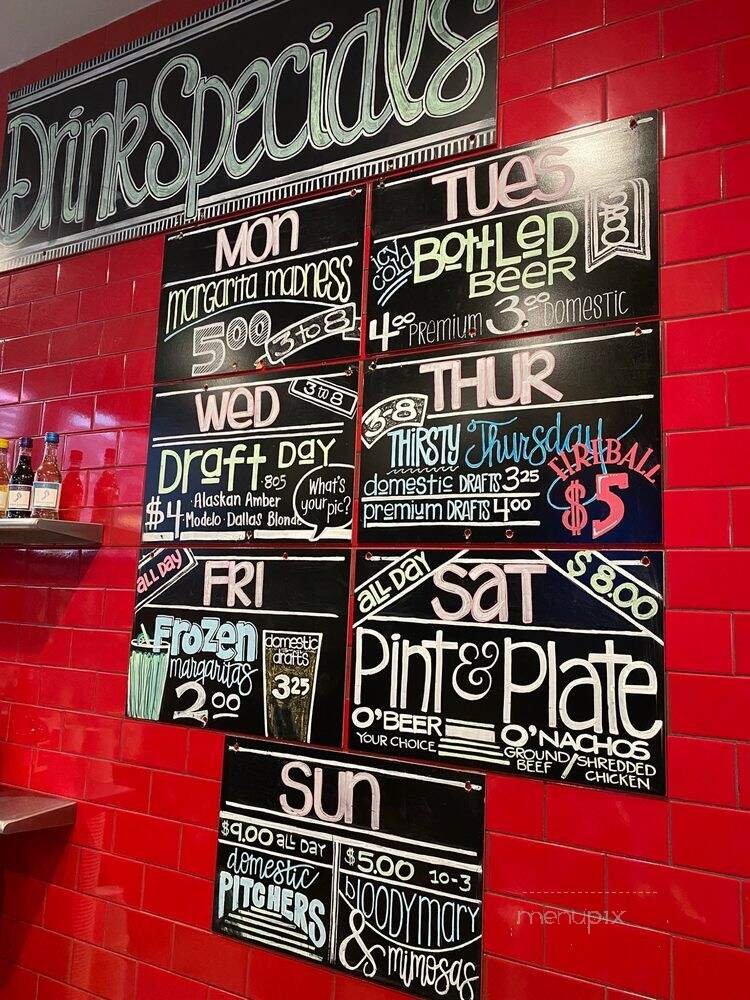 Drink Specials
Mon
margarita madness
5⁰⁰ 3 to 8
Tues
icy cold Bottled
Beer
4⁰⁰ Premium 3⁰⁰ Domestic
Wed
3 to 8
Draft Day
805
Alaskan Amber
$4 Modelo · Dallas Blonde
What's
your pic?
THUR
3-8
THIRSTY Thursday
FIREBALL
$5
domestic DRAFTS 3²⁵
premium DRAFTS 4⁰⁰
ALL DAY
FRI
Frozen
margaritas
2⁰⁰
domestic
drafts
3²⁵
ALL DAY
Sat
$8.00
Pint & Plate
O'BEER
YOUR CHOICE
O'NACHOS
GROUND / SHREDDED
BEEF CHICKEN
Sun
$9.00 all DAY
domestic
PITCHERS
$5.00 10-3
bloody mary
& mimosas
menupix